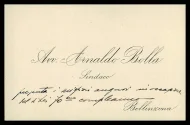 Avv. Arnaldo Bolla
Sindaco
presenta i migliori auguri in occasione
del di Lei 70mo compleanno
Bellinzona